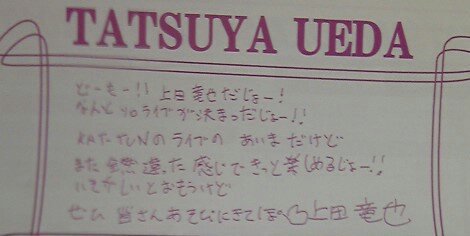 TATSUYA UEDA
どーもー!! 上田竜也だじょー!
なんとソロライブが決まっただじょー!!
KAT-TUNのライブの あいまだけど
また全然違った感じで きっと楽しめるじょー!!
いそがしいとおもうけど
ぜひ 皆さんあそびにきてしぼ 上田竜也